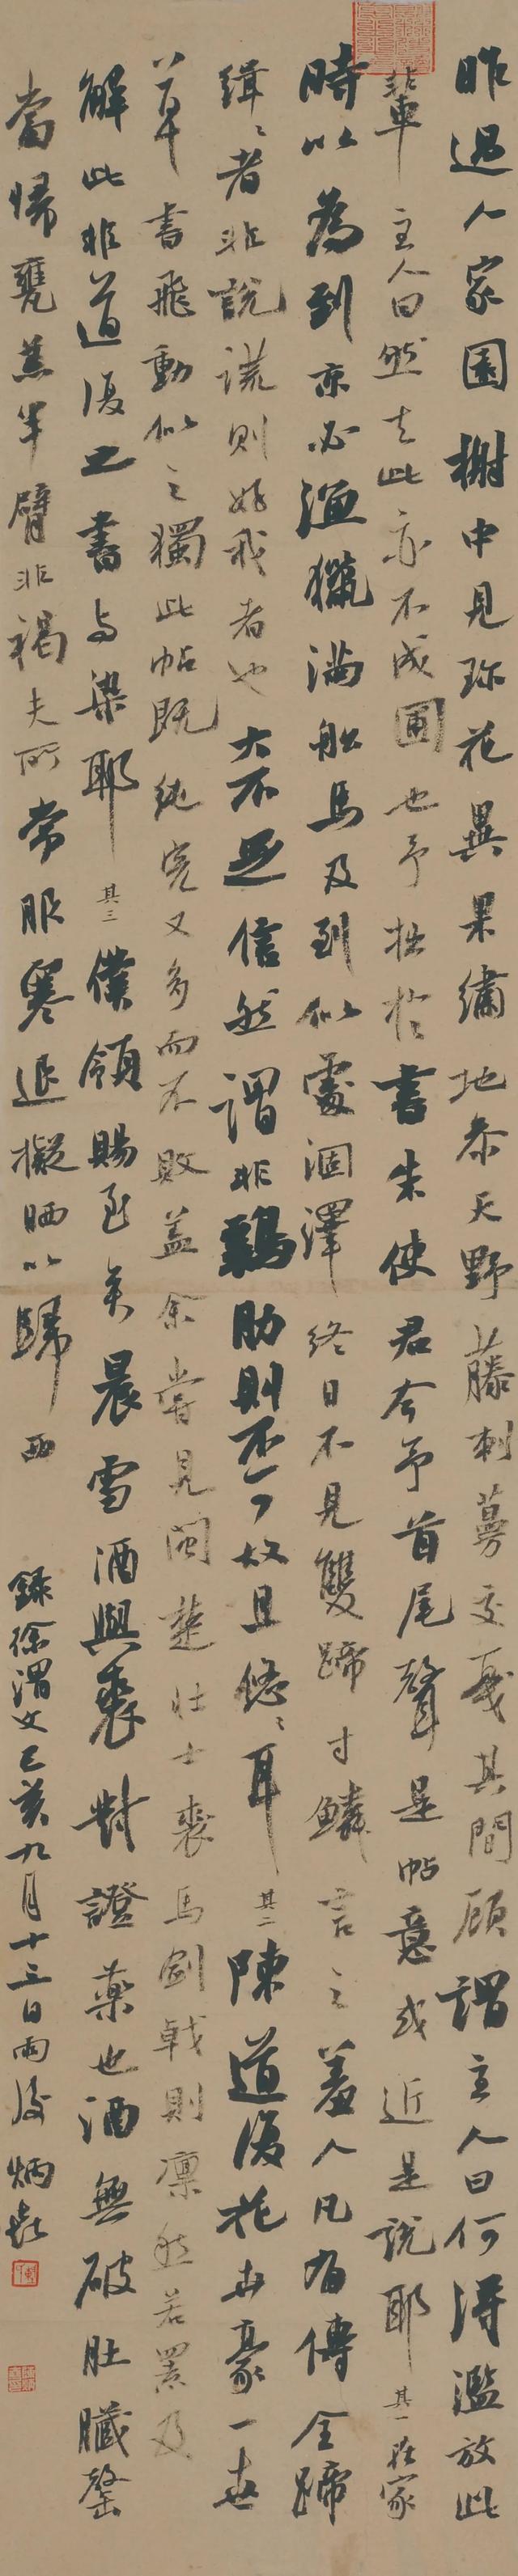 昨過人家園榭中見珍花異果繡地參天野藤刺蔓交戛其間顧謂主人曰何得濫放此
輩主人曰然去此亦不成圃也予拙於書朱使君令予首尾聲是帖意或近是說耶其一在家
時以為到京必漁獵滿船馬及到似處涸澤終日不見雙蹄寸鱗言之羞人凡有傳全蹄
緝緝者非說謊則好我者也大不足信然謂非鷄肋則不可故且悠悠耳其二陳道復花卉豪一世
草書飛動似之獨此帖既純完又多而不敗蓋余嘗見閩楚壯士裘馬劍戟則凜然若羆及
解此非道復之書與染耶其三僕領賜至矣晨雪酒與裘對證藥也酒無破肚臟罄
當歸甕羔半臂非褐夫所常服寒退擬晒以歸西
錄徐渭文己亥九月十三日雨後炳